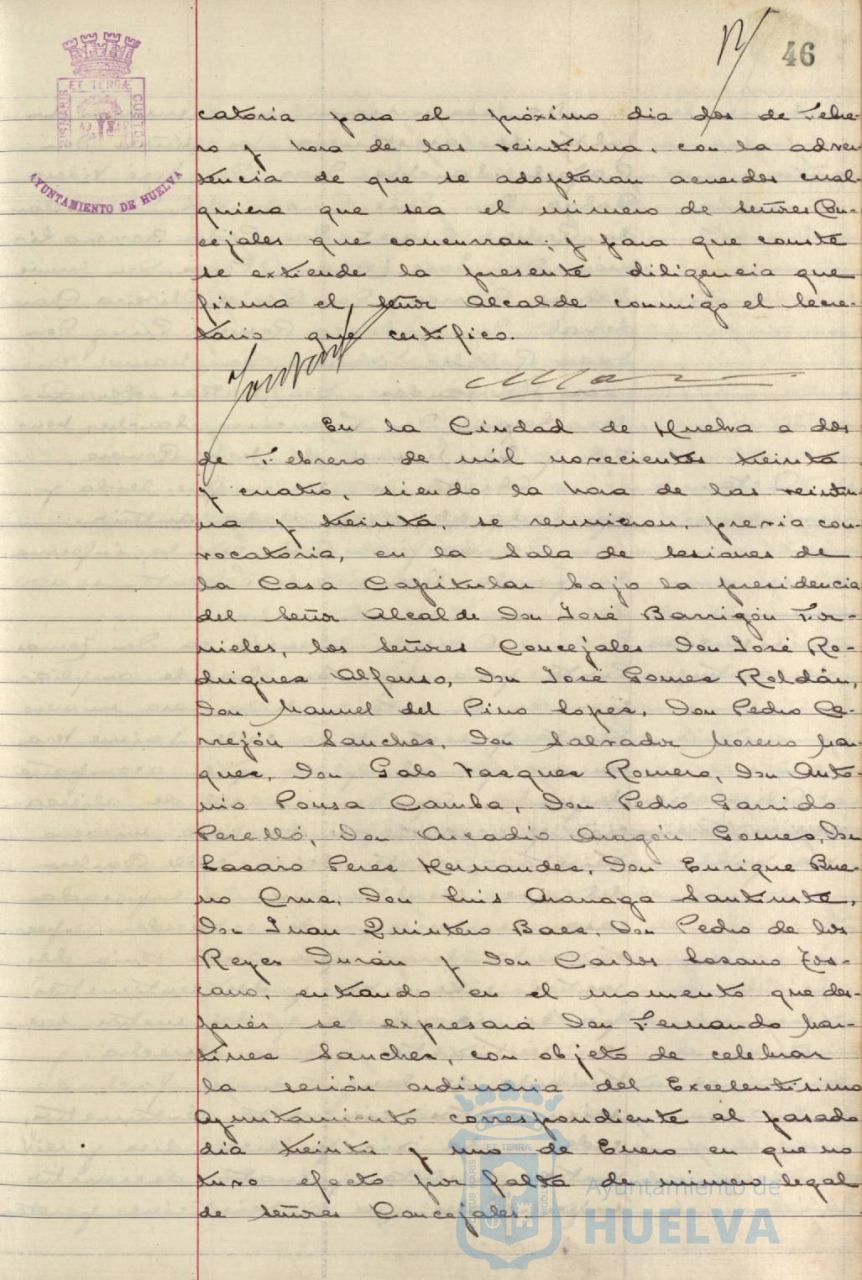 46
ET TERRÆ
CUSTOS
AYUNTAMIENTO DE HUELVA
catoria para el próximo dia dos de Febre-
ro y hora de las veintiuna, con la adver-
tencia de que se adoptaran acuerdos cual-
quiera que sea el número de señores Con-
cejales que concurran; y para que conste
se extiende la presente diligencia que
firma el señor Alcalde conmigo el Secre-
tario que certifico.
En la Ciudad de Huelva a dos
de Febrero de mil novecientos treinta
y cuatro, siendo la hora de las veintiu-
na y treinta, se reunieron, previa con-
vocatoria, en la Sala de sesiones de
la Casa Capitular bajo la presidencia
del señor Alcalde Don José Barrigón For-
nieles, los señores Concejales Don José Ro-
driguez Alfonso, Don José Gomez Roldán,
Don Manuel del Pino Lopez, Don Pedro Ce-
rrejón Sanchez, Don Salvador Moreno Mar-
quez, Don Galo Vazquez Romero, Don Anto-
nio Pousa Camba, Don Pedro Garrido
Perelló, Don Arcadio Aragón Gomez, Don
Lazaro Perez Hernandez, Don Enrique Bue-
no Cruz, Don Luis Aranaga Santiuste,
Don Juan Quintero Baez, Don Pedro de los
Reyes Durán y Don Carlos Lozano Tos-
cano, entrando en el momento que des-
pués se expresará Don Fernando Mar-
tinez Sanchez, con objeto de celebrar
la sesión ordinaria del Excelentísimo
Ayuntamiento correspondiente al pasado
dia treinta y uno de Enero en que no
tuvo efecto por falta de número legal
de señores Concejales.
Ayuntamiento de
HUELVA